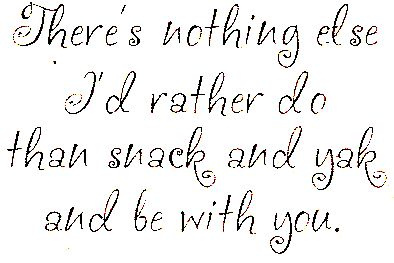 There's nothing else
I'd rather do
than snack and yak
and be with you.